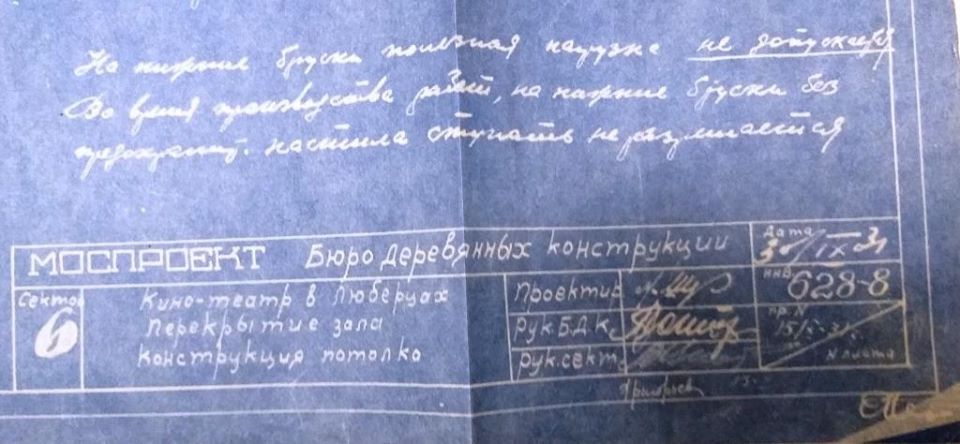 На нижние бруски полезная нагрузка не допускается
Во время производства работ, на нижние бруски без
предохранит. настила ступать не разрешается
МОСПРОЕКТ
Бюро деревянных конструкции
Дата
30/IX 31
Сектор
6
Кино-театр в Люберцах
Перекрытие зала
Конструкция потолко
Проектир
Рук.Б.Д.К.
Рук.сект.
инв
628-8
пр. N
N листа